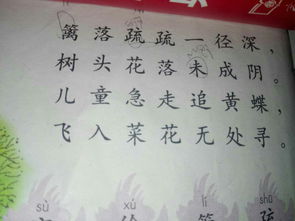 篱落疏疏一径深，
树头花落未成阴。
儿童急走追黄蝶，
飞入菜花无处寻。
sù xú lí shū